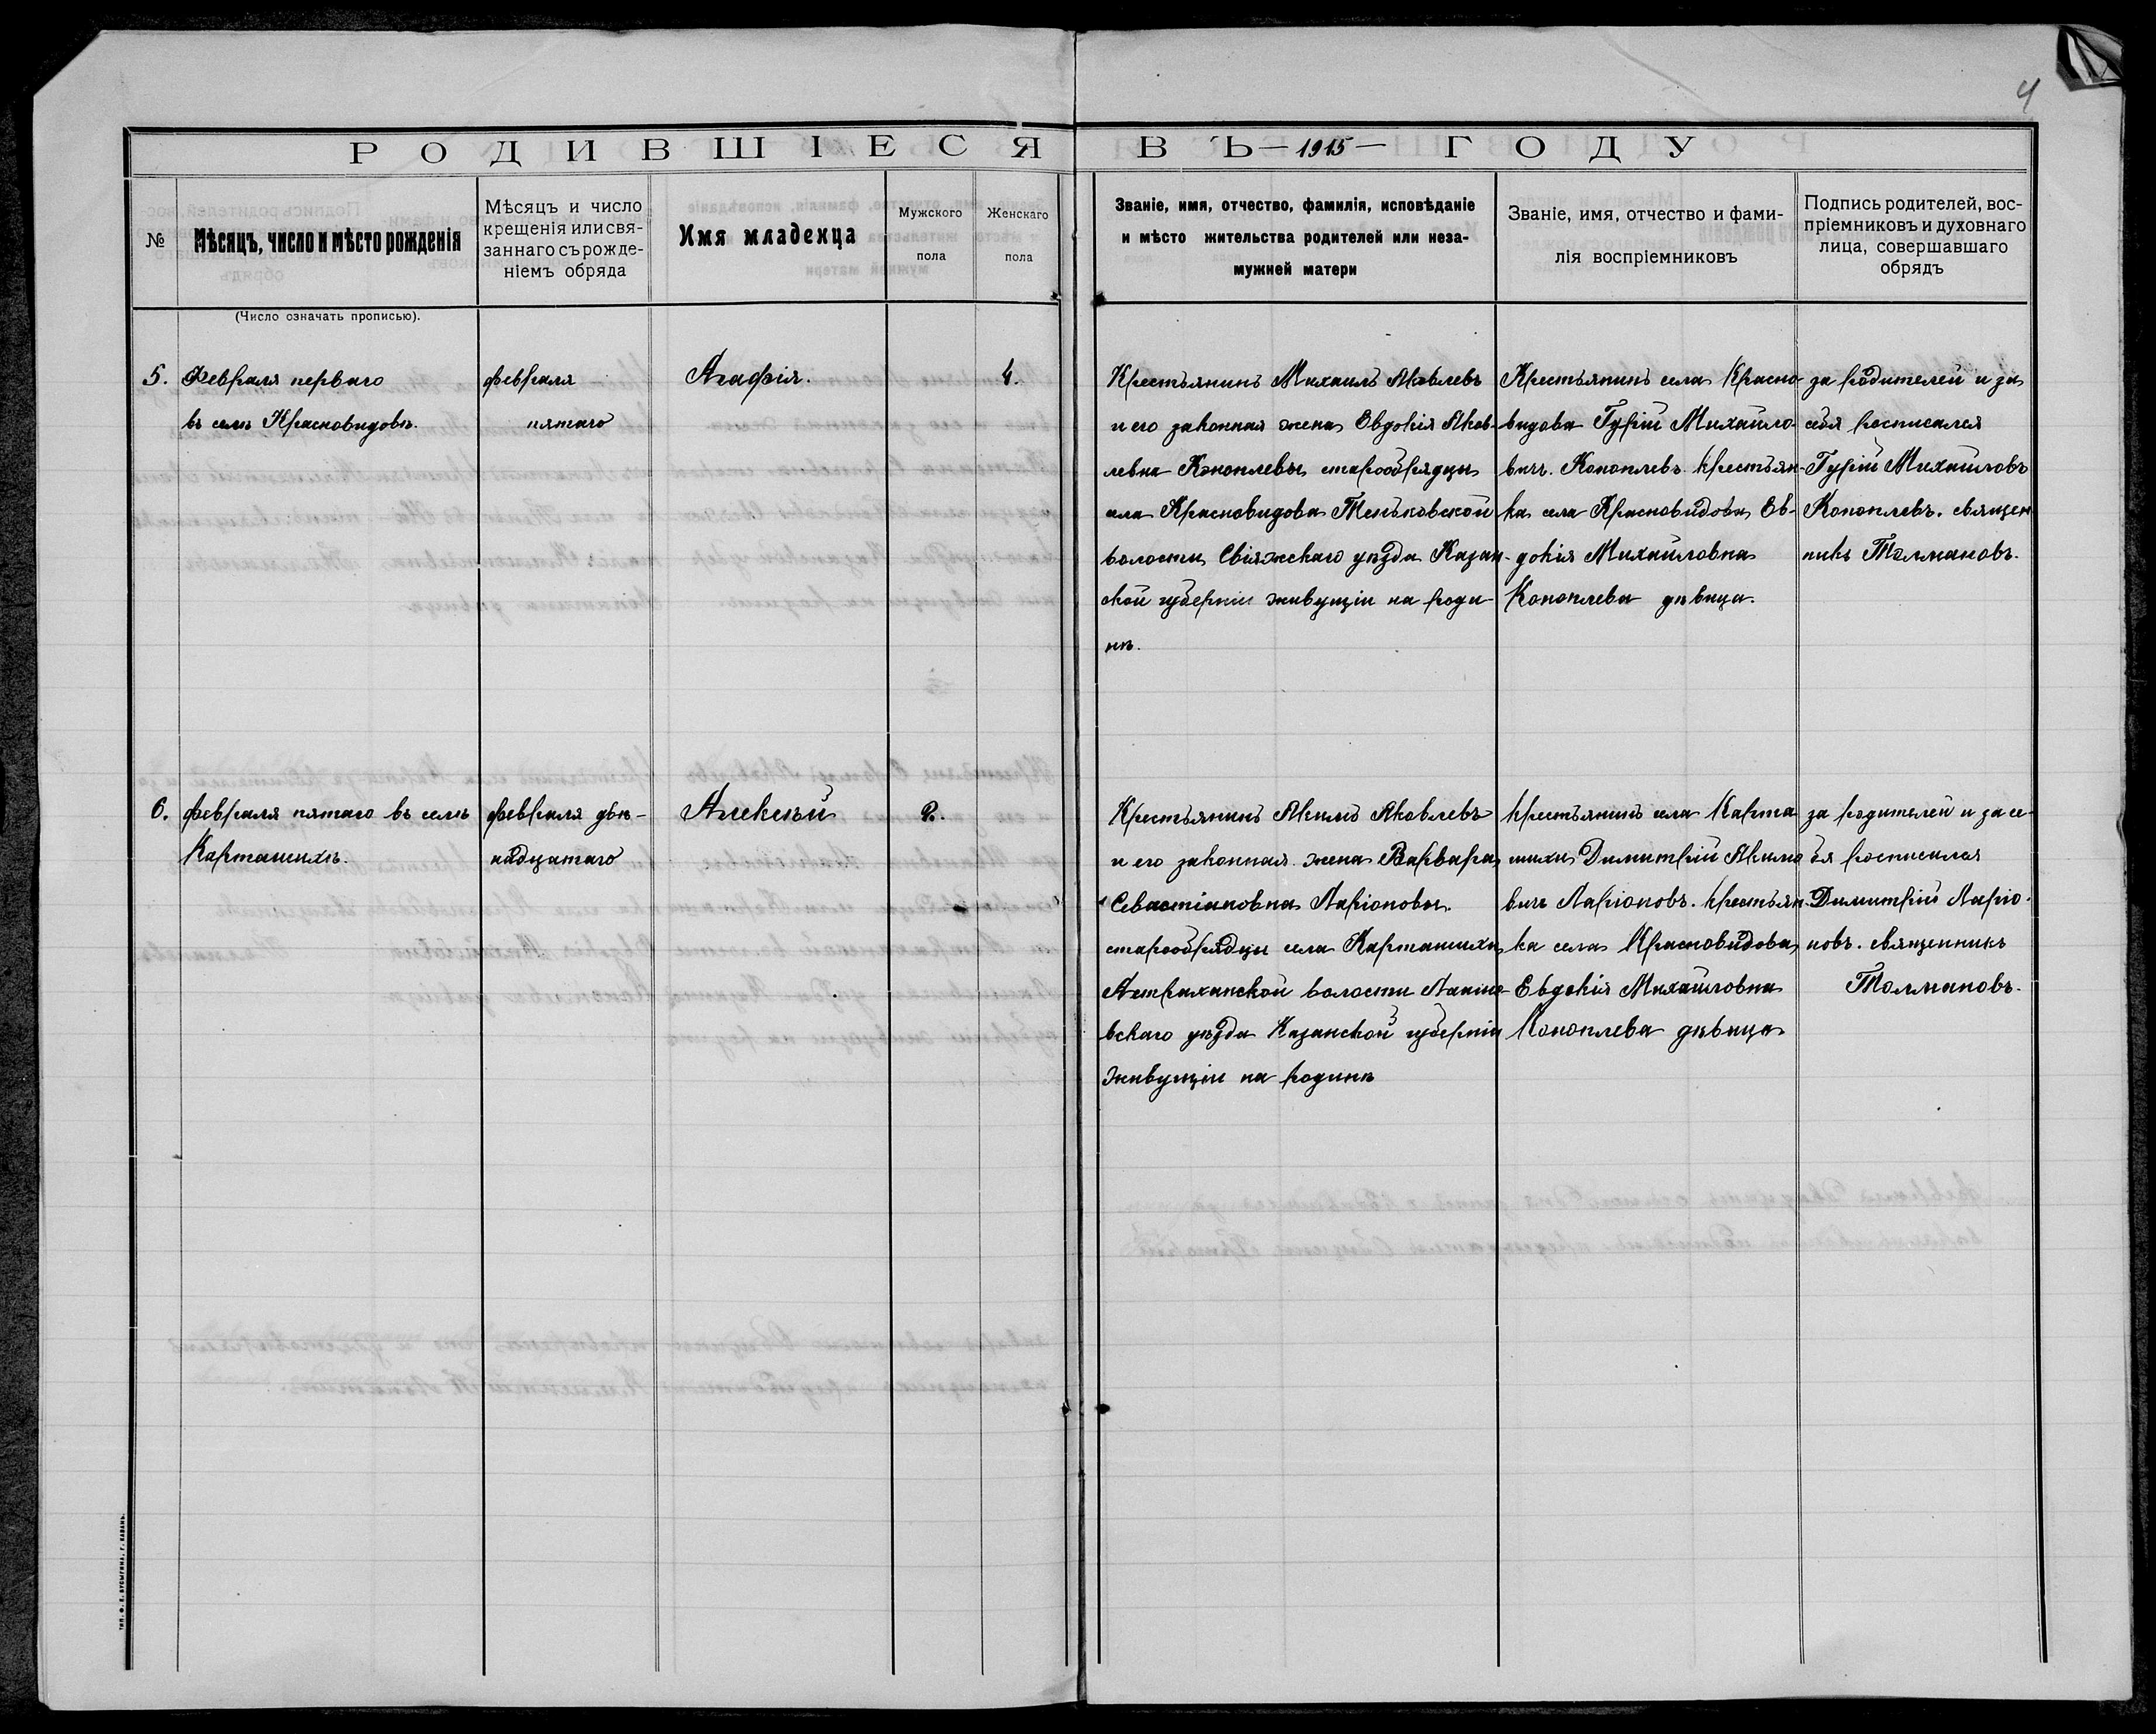 4
РОДИВШІЕСЯ ВЪ —1915— ГОДУ
№
Мѣсяцъ, число и мѣсто рожденія
Мѣсяцъ и число
крещенія или свя-
заннаго съ рожде-
ніемъ обряда
Имя младенца
Мужского
пола
Женскаго
пола
Званіе, имя, отчество, фамилія, исповѣданіе
и мѣсто жительства родителей или неза-
мужней матери
Званіе, имя, отчество и фами-
лія воспріемниковъ
Подпись родителей, вос-
пріемниковъ и духовнаго
лица, совершавшаго
обрядъ
(Число означать прописью).
5.
Февраля перваго
въ селѣ Красновидовѣ.
февраля
пятаго
Агафія.
4.
Крестьянинъ Михаилъ Яковлевъ
и его законная жена Евдокія Яков-
левна Коноплевы старообрядцы
села Красновидова Теньковской
волости Свіяжскаго уѣзда Казан-
ской губерніи живущіи на роди-
нѣ.
Крестьянинъ села Красно-
видова Гурій Михайло-
вичъ Коноплевъ. Крестьян-
ка села Красновидова Ев-
докія Михайловна
Коноплева дѣвица.
за родителей и за
себя росписался
Гурій Михайловъ
Коноплевъ. священ
никъ Толмановъ.
6.
февраля пятаго въ селѣ
Карташихѣ.
февраля двѣ-
надцатаго
Алексѣй
2.
Крестьянинъ Акимъ Яковлевъ
и его законная жена Варвара
Севастіановна Ларіоновы.
старообрядцы села Карташихи
Астраханской волости Лаише-
вскаго уѣзда Казанской губерніи
живущіи на родинѣ
крестьянинъ села Карта
шихи Димитрій Акимо
вичъ Ларіоновъ. крестьян-
ка села Красновидова
Евдокія Михайловна
Коноплева дѣвица
за родителей и за се-
бя росписался
Димитрій Ларіо-
новъ. священникъ
Толмановъ.